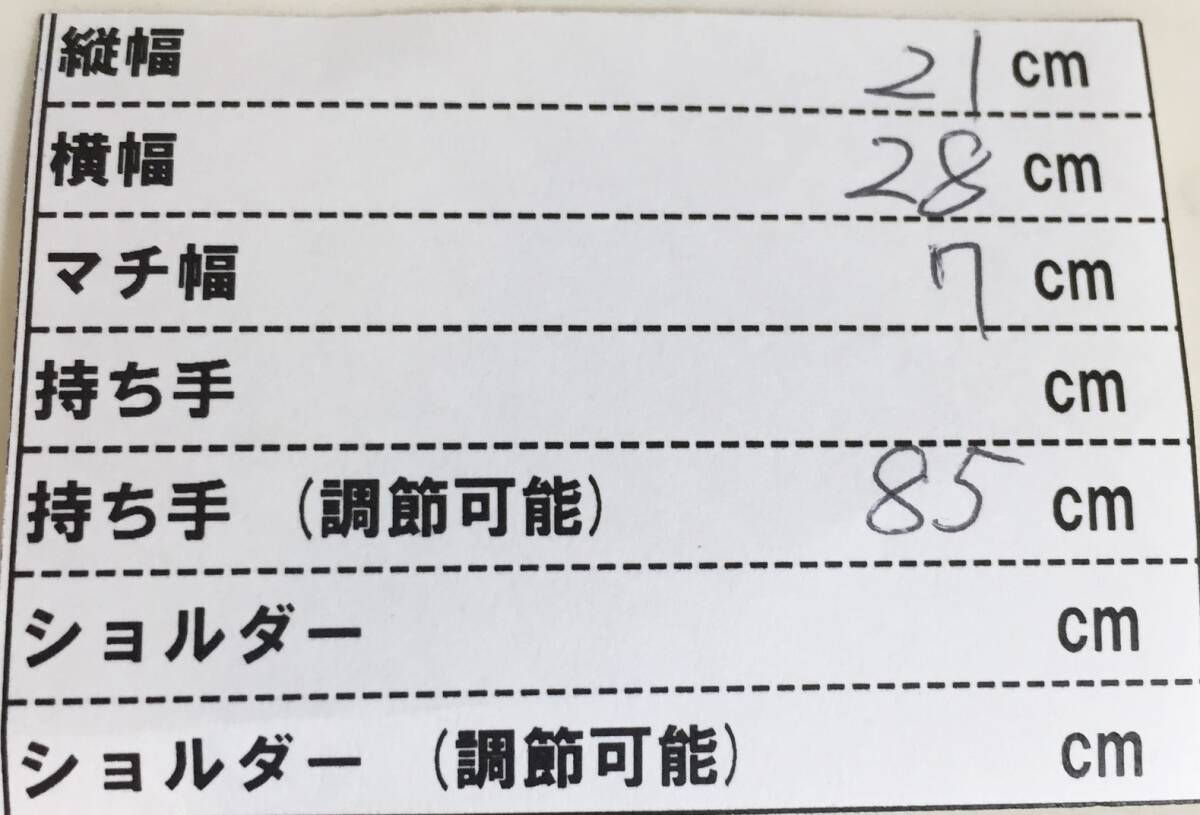 縦幅 21 cm
横幅 28 cm
マチ幅 7 cm
持ち手 cm
持ち手 (調節可能) 85 cm
ショルダー cm
ショルダー (調節可能) cm